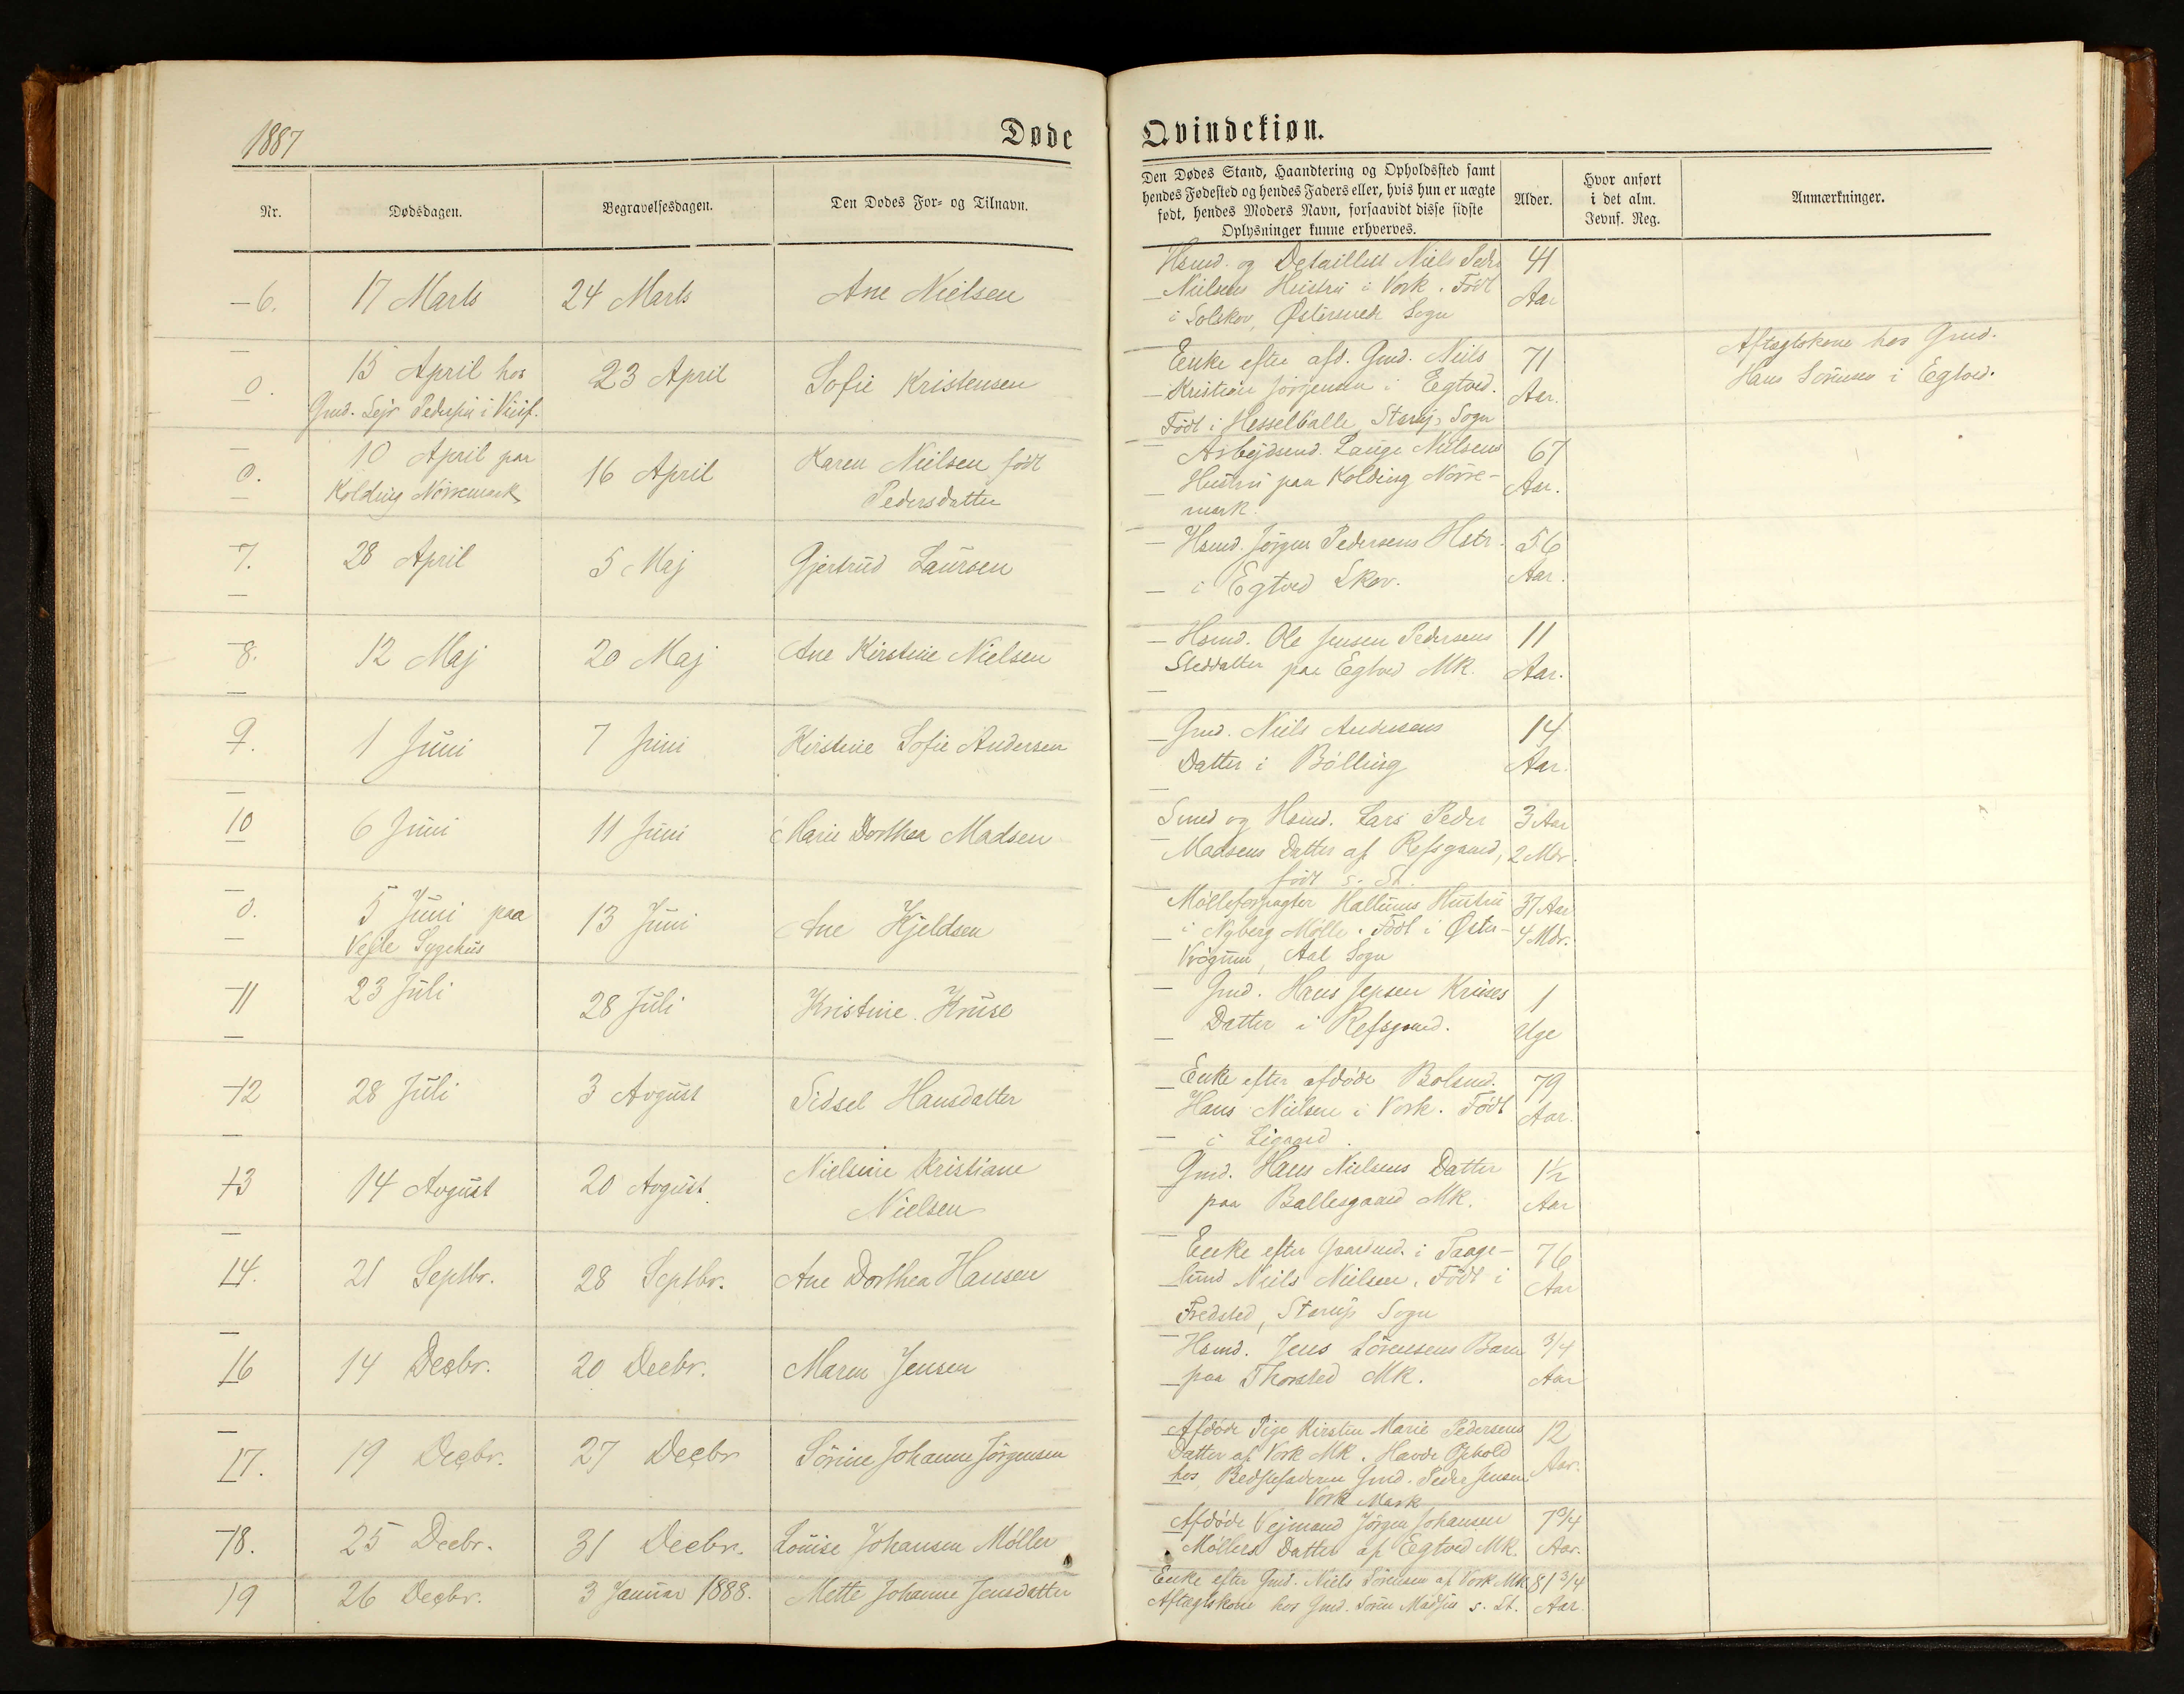 1887
Døde
Qvindekiøn.
Nr.
Dødsdagen.
Begravelsesdagen.
Den Dødes For- og Tilnavn.
Den Dødes Stand, Haandtering og Opholdssted samt
hendes Fødested og hendes Faders eller, hvis hun er uægte
født, hendes Moders Navn, forsaavidt disse sidste
Oplysninger kunne erhverves.
Alder.
Hvor anført
i det alm.
Jevnf. Reg.
Anmærkninger.
6.
17 Marts
24 Marts
Ane Nielsen
Hsmd. og Detaillist Niels Peder
Nielsens Hustru i Vork. Født
i Solskov, Sogn
41
Aar
0.
15 April hos
Gmd. Sejr Pedersen i
23 April
Sofie Kristensen
Enke efter afd. Gmd. Niels
Kristian Jörgensen i Egtved.
Födt i Hesselballe, Starup Sogn
71
Aar.
Aftægtskone hos Gmd.
Hans Sörensen i Egtved.
0.
10 April paa
Kolding Nörremark
16 April
Karen Nielsen födt
Pedersdatter
Arbejdsmd. Lauge Nielsens
Hustru paa Kolding Nörre-
mark.
67
Aar.
7.
28 April
5 Maj
Gjertrud Laursen
Hsmd. Jörgen Pedersens Hstr.
i Egtved Skov.
56
Aar.
8.
12 Maj
20 Maj
Ane Kirstine Nielsen
Hsmd. Ole Jensen Pedersens
Steddatter paa Egtved MK.
11
Aar.
9.
1 Juni
7 Juni
Kirstine Sofie Andersen
Gmd. Niels Andersens
Datter i Bölling
14
Aar.
10
6 Juni
11 Juni
Marie Dorthea Madsen
Smed og Hsmd. Lars Peder
Madsens Datter af Refsgaard,
födt s. St.
3 Aar
2 Mdr.
0.
5 Juni paa
Vejle Sygehus
13 Juni
Ane Kjeldsen
Mølleforpagter Hallums Hustru
i Nyberg Mølle. Födt i Øster-
Vrögum, Aal Sogn
37 Aar
4 Mdr.
11
23 Juli
28 Juli
Kristine Kruse
Gmd. Hans Jepsen Kruses
Datter i Refsgaard.
1
Uge
12
28 Juli
3 Avgust
Sidsel Hansdatter
Enke efter afdøde Bolsmd.
Hans Nielsen i Vork. Födt
i Ligaard.
79
Aar.
13
14 Avgust
20 Avgust.
Nielsine Kristiane
Nielsen
Gmd. Hans Nielsens Datter
paa Ballesgaard MK.
1½
Aar
14.
21 Septbr.
28 Septbr.
Ane Dorthea Hansen
Enke efter Gaardmd. i Taage-
lund Niels Nielsen. Födt i
Fredsted, Starup Sogn
76
Aar
16
14 Decbr.
20 Decbr.
Maren Jensen
Hsmd. Jens Sörensens Barn
paa Thorsted MK.
3/4
Aar
17.
19 Decbr.
27 Decbr
Sörine Johanne Jörgensen
Afdøde Pige Kirsten Marie Pedersens
Datter af Vork MK. Havde Ophold
hos Bedstefaderen Gmd. Peder Jensen
Vork Mark
12
Aar.
18.
25 Decbr.
31 Decbr.
Louise Johansen Møller
Afdøde Vejmand Jörgen Johansen
Møllers Datter af Egtved MK.
7 3/4
Aar.
19
26 Decbr.
3 Januar 1888.
Mette Johanne Jensdatter
Enke efter Gmd. Niels Sörensen af Vork MK
Aftægtskone hos Gmd. Sören Madsen s. St.
81 3/4
Aar.